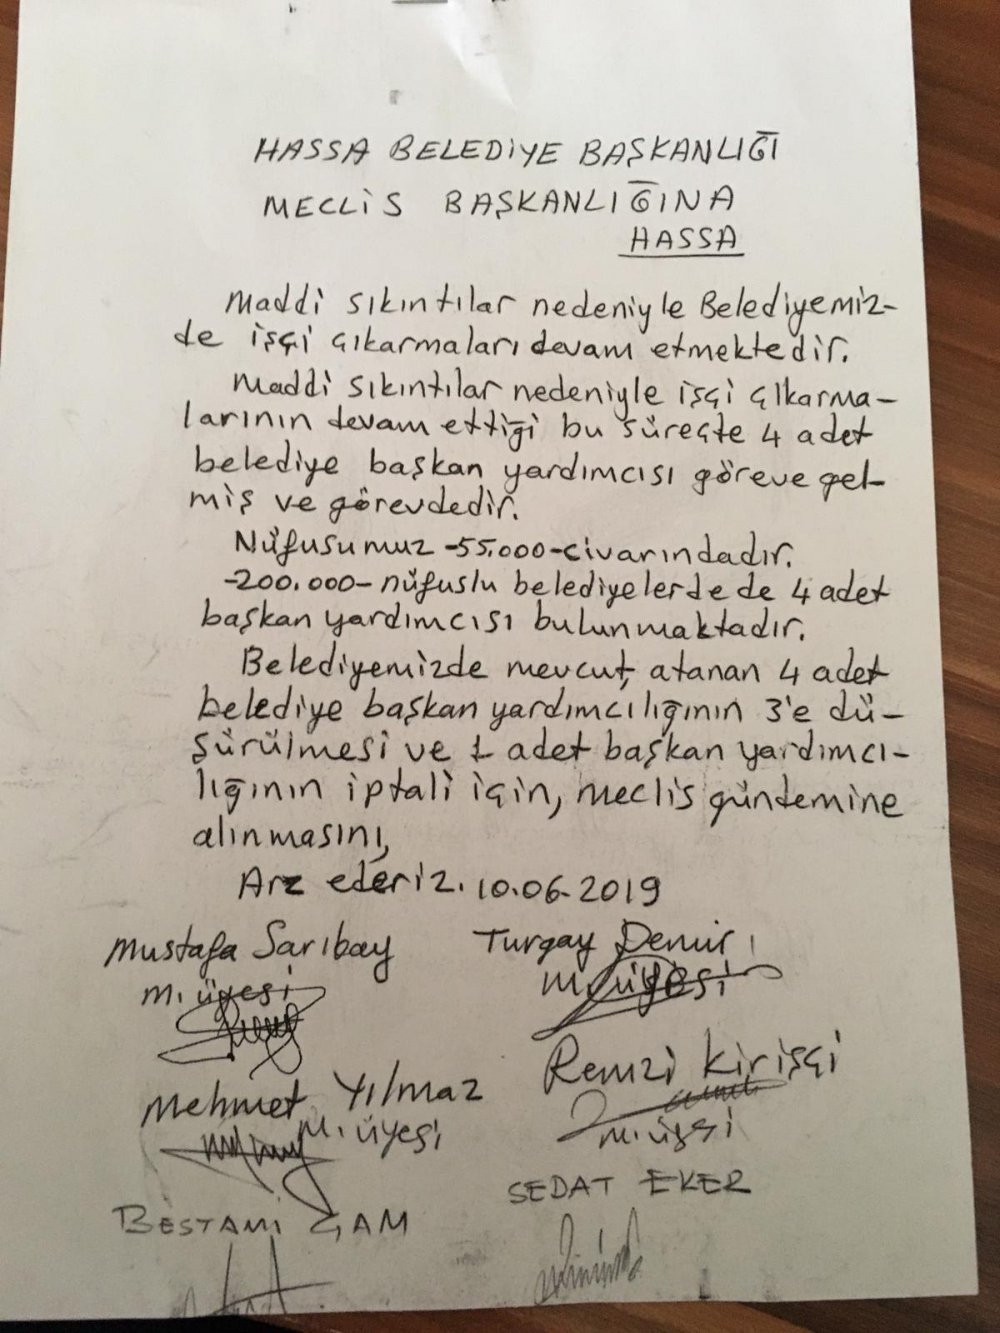 HASSA BELEDİYE BAŞKANLIĞI
MECLİS BAŞKANLIĞINA
HASSA
Maddi sıkıntılar nedeniyle Belediyemiz-
de işçi çıkarmaları devam etmektedir.
Maddi sıkıntılar nedeniyle işçi çıkarma-
larının devam ettiği bu süreçte 4 adet
belediye başkan yardımcısı göreve gel-
miş ve görevdedir.
Nüfusumuz -55.000-civarındadır.
-200.000- nüfuslu belediyelerde de 4 adet
başkan yardımcısı bulunmaktadır.
Belediyemizde mevcut, atanan 4 adet
belediye başkan yardımcılığının 3'e dü-
şürülmesi ve 1 adet başkan yardımcı-
lığının iptali için, meclis gündemine
alınmasını,
Arz ederiz. 10.06.2019
Mustafa Sarıbay Turgay Demir
M. üyesi M. üyesi
Mehmet Yılmaz Remzi Kirişçi
M. üyesi M. üyesi
BESTAMİ ÇAM SEDAT EKER